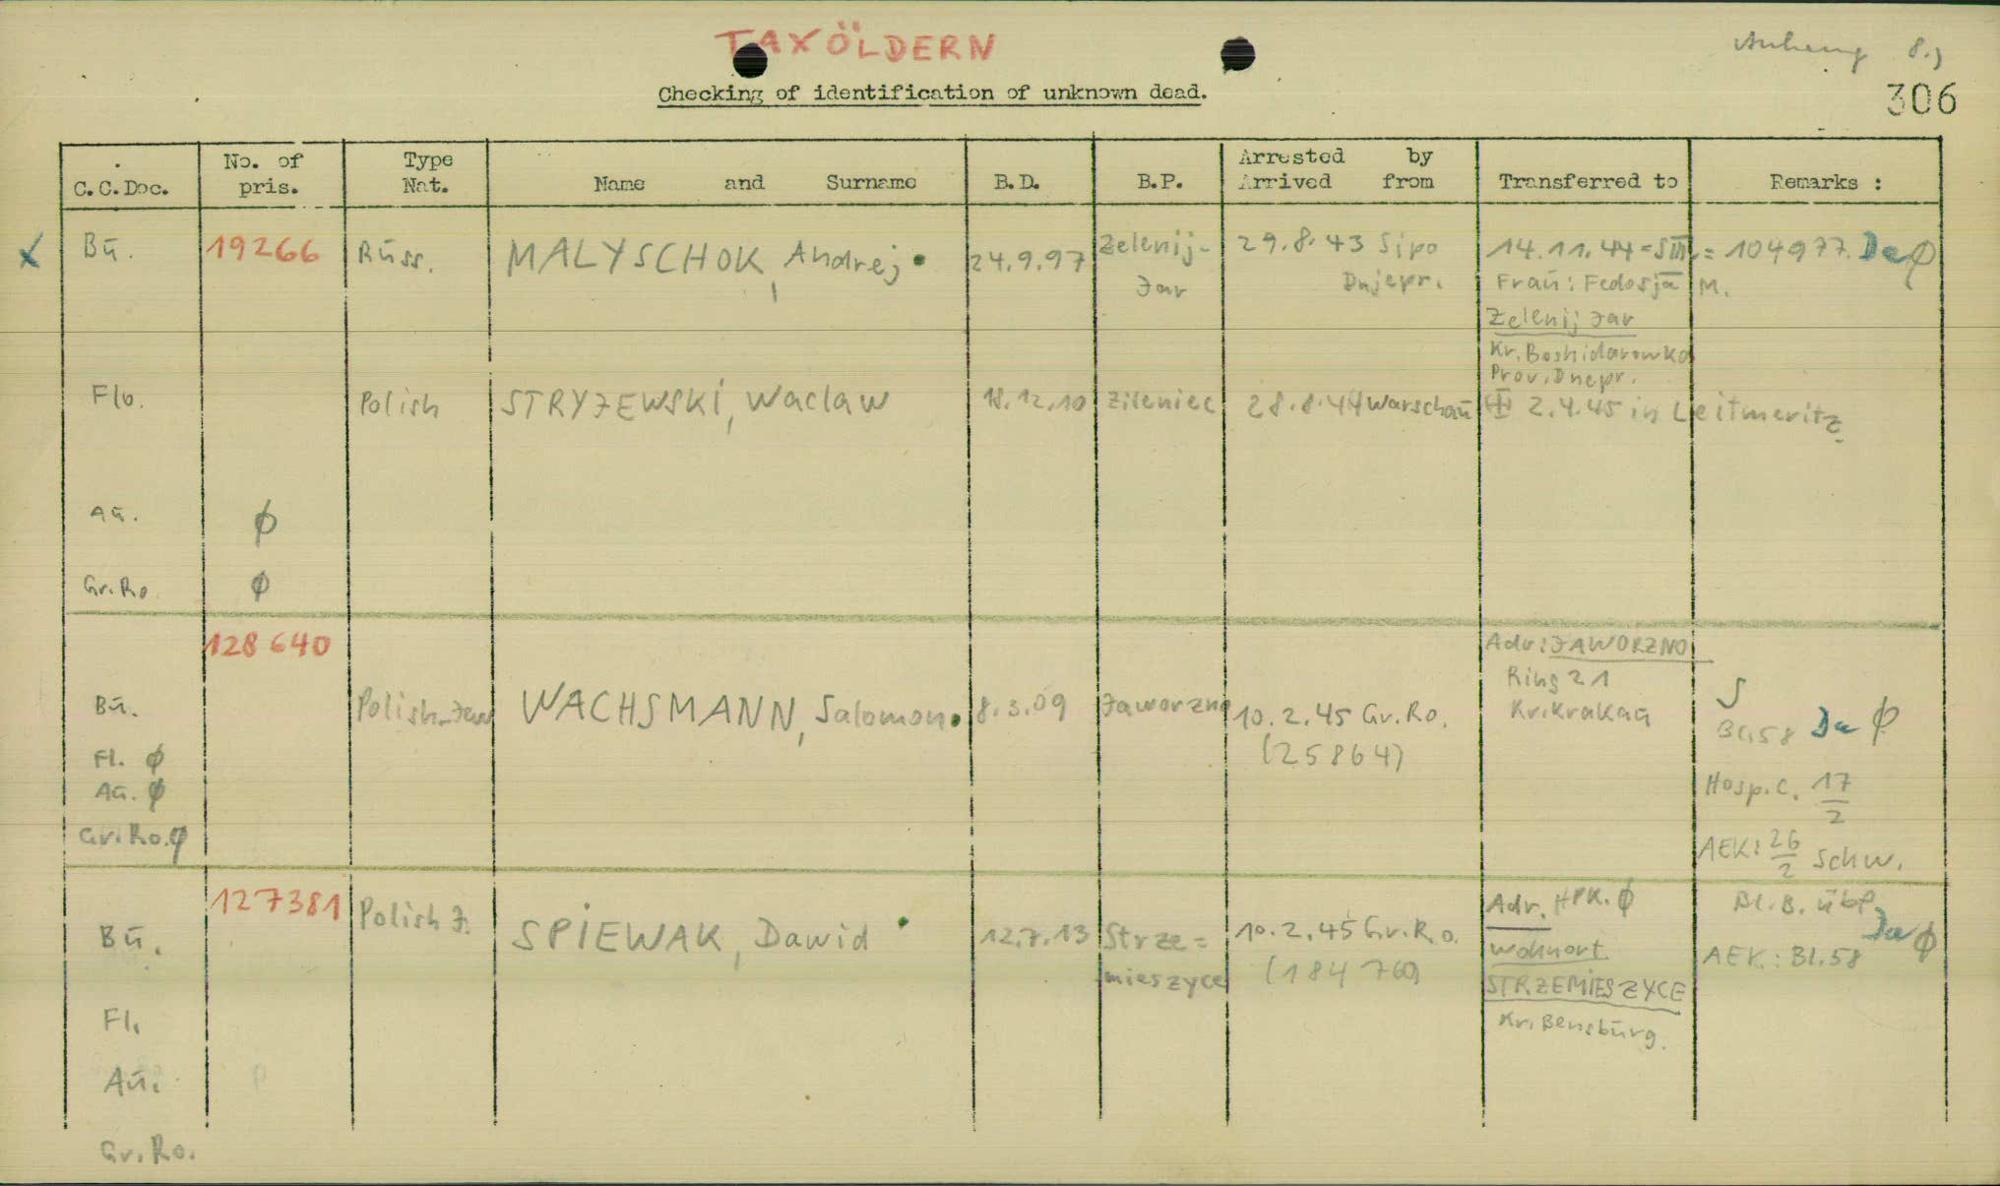 TAXÖLDERN
Anhang 8.)
Checking of identification of unknown dead.
306
C.C.Doc. No. of pris. Type Nat. Name and Surname B.D. B.P. Arrested by Arrived from Transferred to Remarks :
Bū. 19266 Rūss. MALYSCHOK, Andrej 24.9.97 Zelenij- 29.8.43 Sipo 14.11.44 = SIII = 104977. Da ϕ
Jar Dnjepr. Fraū: Fedosja M.
Zelenij Jar
Kr. Boshidarowka
Prov. Dnepr.
Flo. Polish STRYZEWSKI, Waclaw 18.12.10 Zileniec 28.8.44 Warschaū 2.4.45 in Leitmeritz
Aū. ϕ
Gr.Ro ϕ
128640 Adr: JAWORZNO
Ring 21
Bū. Polish-Jew WACHSMANN, Salomon 8.3.09 Jaworzno 10.2.45 Gr.Ro. Kr. Krakaū
(25864) Bl.58 Da ϕ
Fl. ϕ
Aū. ϕ Hosp.C. 17/2
Gr.Ro. ϕ
AEK: 26/2 Schw.
127381 Polish J. Adr. HPK. ϕ Bl.B. übf
Bū. SPIEWAK, Dawid 12.7.13 Strze= 10.2.45 Gr.Ro. Wohnort Da ϕ
mieszyce (184760) STRZEMIESZYCE AEK: Bl.58
Fl. Kr. Bensbūrg.
Aū.
Gr.Ro.